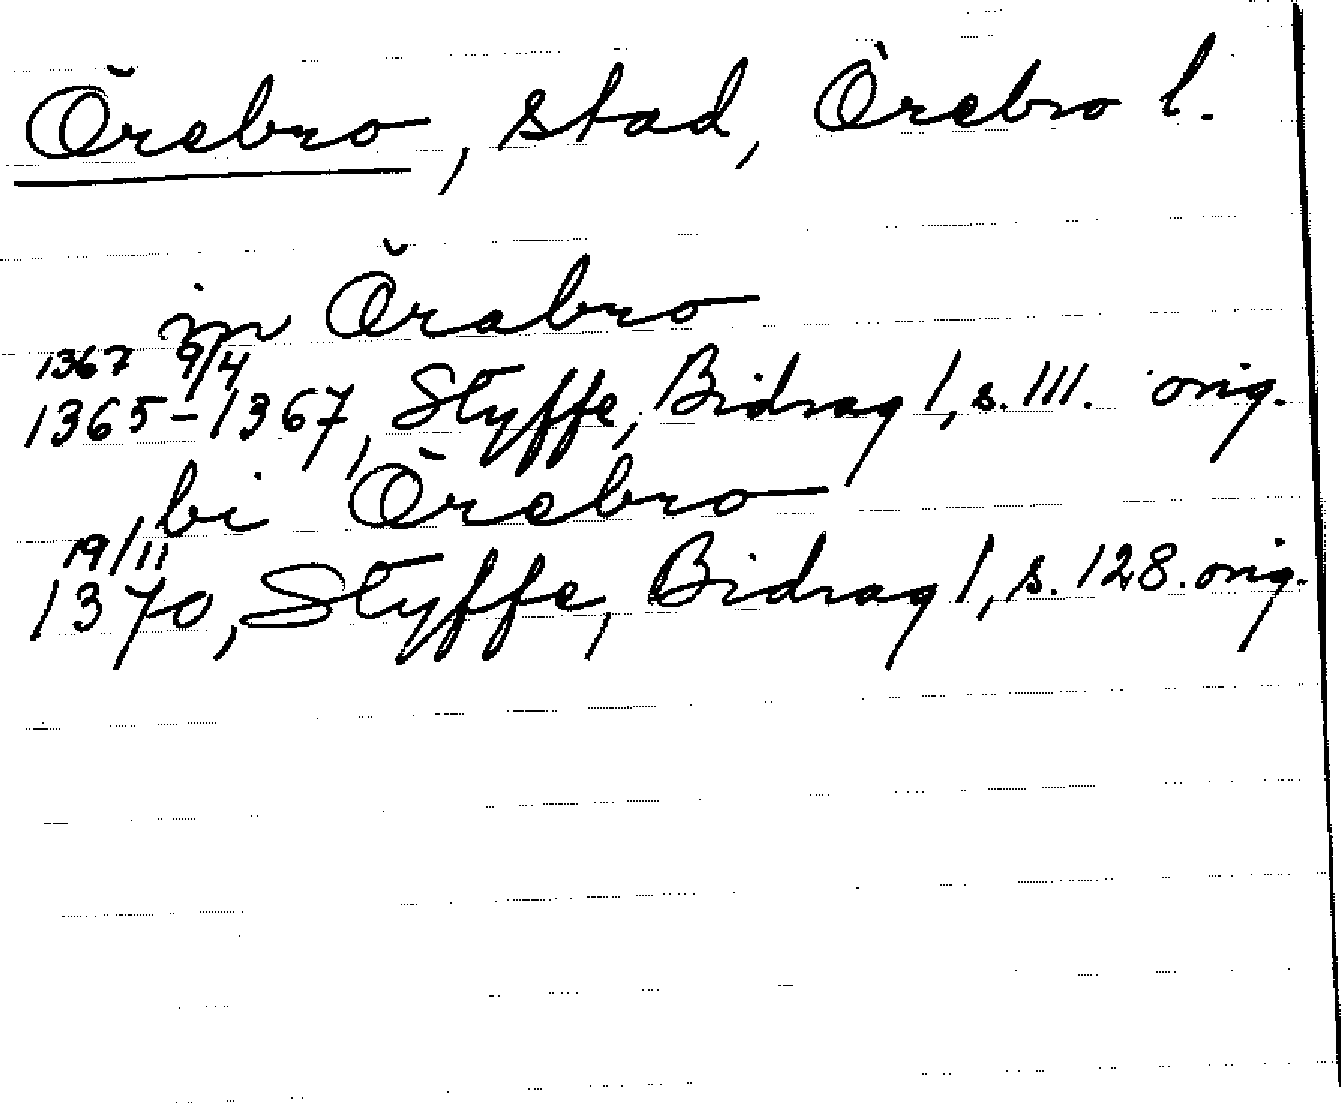 Örebro, stad, Örebro l.
in Örabro
1367 9/4
1365-1367, Styffe, Bidrag I, s. 111. orig.
bi Örebro
19/11
1370, Styffe, Bidrag I, s. 128. orig.